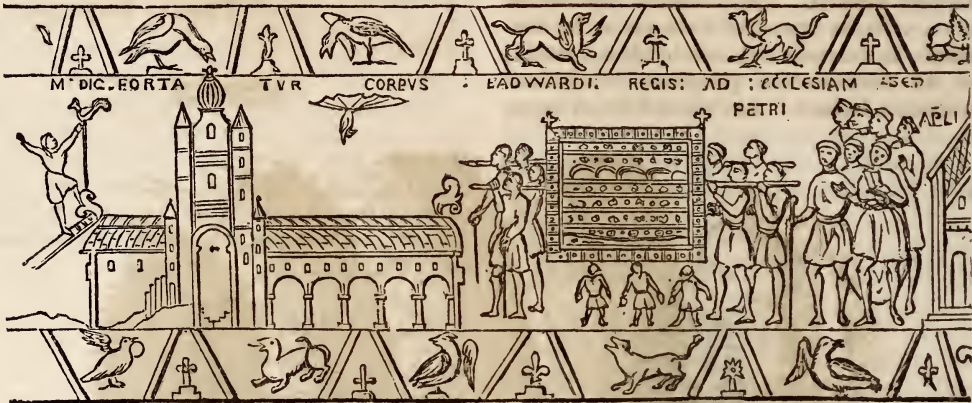 DIC.PORTA TVR CORPVS : EADWARDI: REGIS: AD : ECCLESIAM
PETRI
AP̄LI